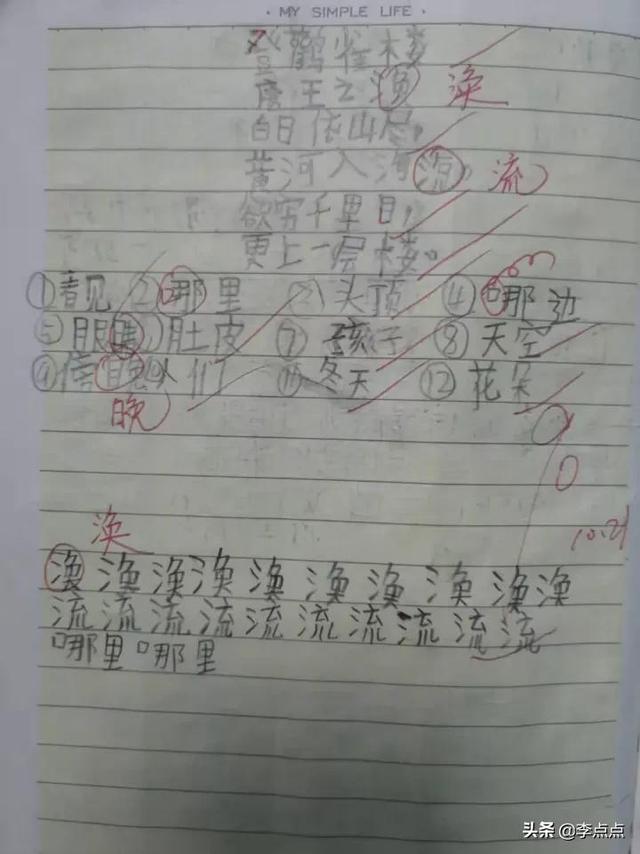 · MY SIMPLE LIFE ·
登鹳雀楼
唐王之涣 涣
白日依山尽,
黄河入海流。 流
欲穷千里目,
更上一层楼。
①看见 ②哪里 ③头顶 ④哪边
⑤眼睛 肚皮 ⑦孩子 ⑧天空
⑨傍晚 人们 ⑪冬天 ⑫花朵
晚
10.21
涣
涣涣涣涣涣涣涣涣涣涣
流流流流流流流流流流
哪里哪里
头条 @李点点